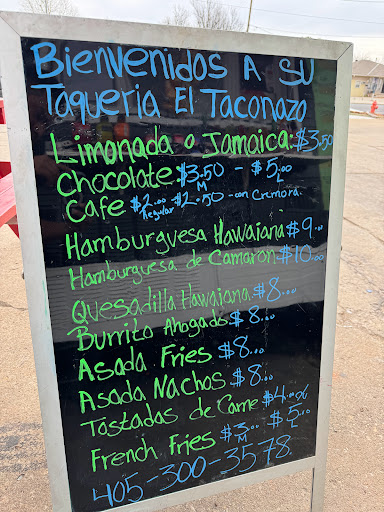 Bienvenidos A Su
Taqueria El Taconazo
Limonada o Jamaica: $3.50
Chocolate: $3.50 - $5.00
M L
Cafe $2.00 $2.50 - con Cremora
Regular
Hamburguesa Hawaiana $9.00
Hamburguesa de Camaron $10.00
Quesadilla Hawaiana $8.00
Burrito Ahogado $8.00
Asada Fries $8.00
Asada Nachos $8.00
Tostadas de Carne $4.00
French Fries $3.00 $5.00
M L
405-300-3578